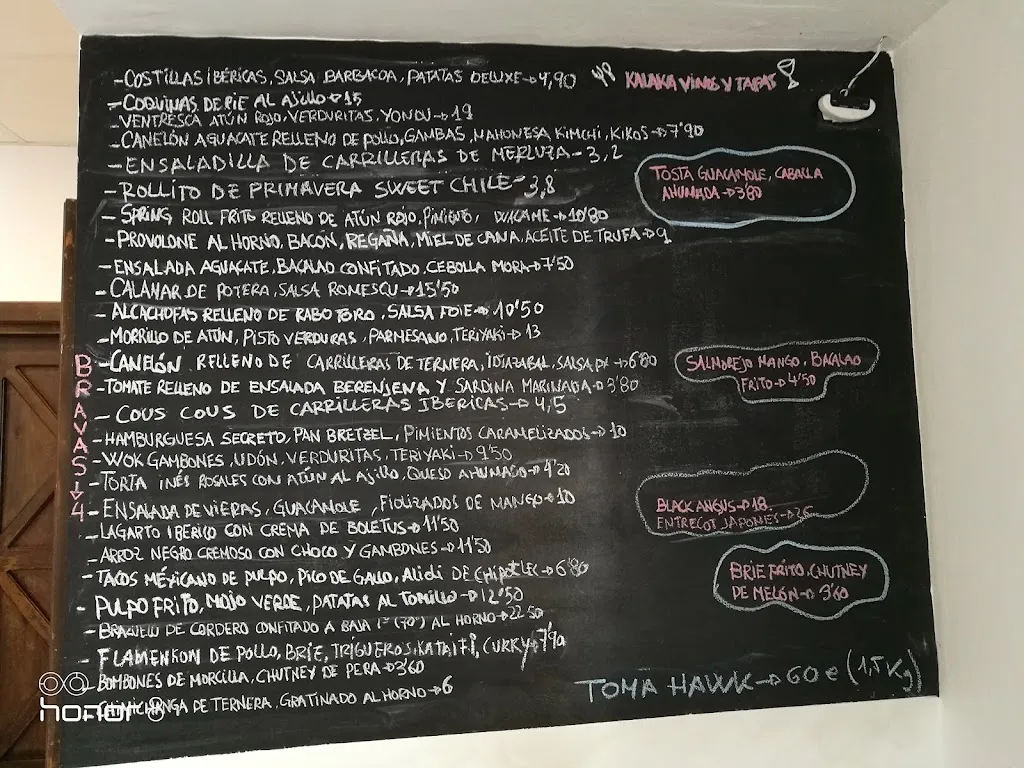 -COSTILLAS IBÉRICAS, SALSA BARBACOA, PATATAS DELUXE→4,90
-COQUINAS DE PIE AL AJILLO→15
-VENTRESCA ATÚN ROJO, VERDURITAS, YONDU→19
-CANELÓN AGUACATE RELLENO DE POLLO, GAMBAS, MAHONESA KIMCHI, KIKOS→7'90
-ENSALADILLA DE CARRILLERAS DE MERLUZA-3,2
-ROLLITO DE PRIMAVERA SWEET CHILE-3,8
-SPRING ROLL FRITO RELLENO DE ATÚN ROJO, PIMIENTO, WAKAME→10'80
-PROVOLONE AL HORNO, BACÓN, REGAÑÁ, MIEL DE CAÑA, ACEITE DE TRUFA→9
-ENSALADA AGUACATE, BACALAO CONFITADO, CEBOLLA MORA→7'50
-CALAMAR DE POTERA, SALSA ROMESCU→15'50
-ALCACHOFAS RELLENO DE RABO TORO, SALSA FOIE→10'50
-MORRILLO DE ATÚN, PISTO VERDURAS, PARMESANO, TERIYAKI→13
-CANELÓN RELLENO DE CARRILLERAS DE TERNERA, IDIAZABAL, SALSA PX→6'80
-TOMATE RELLENO DE ENSALADA BERENJENA Y SARDINA MARINADA→3'80
-COUS COUS DE CARRILLERAS IBERICAS→4,5
-HAMBURGUESA SECRETO, PAN BRETZEL, PIMIENTOS CARAMELIZADOS→10
-WOK GAMBONES, UDÓN, VERDURITAS, TERIYAKI→9'50
-TORTA INÉS ROSALES CON ATÚN AL AJILLO, QUESO AHUMADO→4'20
-ENSALADA DE VIEIRAS, GUACAMOLE, FIDEIZADOS DE MANGO→10
-LAGARTO IBERICO CON CREMA DE BOLETUS→11'50
-ARROZ NEGRO CREMOSO CON CHOCO Y GAMBONES→11'50
-TACOS MÉXICANO DE PULPO, PICO DE GALLO, ALIOLI DE CHIPOTLE→6'80
-PULPO FRITO, MOJO VERDE, PATATAS AL TOMILLO→12'50
-BRAZUELO DE CORDERO CONFITADO A BAJA Tª (70º) AL HORNO→22'50
-FLAMENKON DE POLLO, BRIE, TRIGUEROS, KATAIFI, CURRY→7'90
-BOMBONES DE MORCILLA, CHUTNEY DE PERA→3'60
-CHIMICHANGA DE TERNERA, GRATINADO AL HORNO→6
BRAVAS→4
KALAKA VINOS Y TAPAS
TOSTA GUACAMOLE, CABALLA
AHUMADA→3'80
SALMOREJO MANGO, BACALAO
FRITO→4'50
BLACK ANGUS→18
ENTRECOT JAPONES→
BRIE FRITO, CHUTNEY
DE MELÓN→3'60
TOMA HAWK→60 e (1,5 Kg)
honor